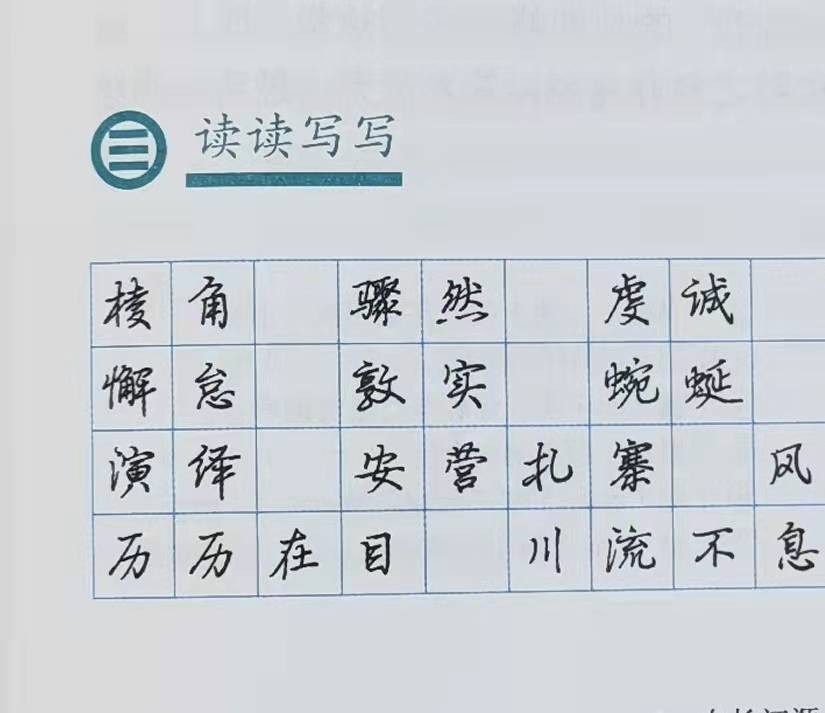 读读写写
棱角 骤然 虔诚
懈怠 敦实 蜿蜒
演绎 安营扎寨 风
历历在目 川流不息